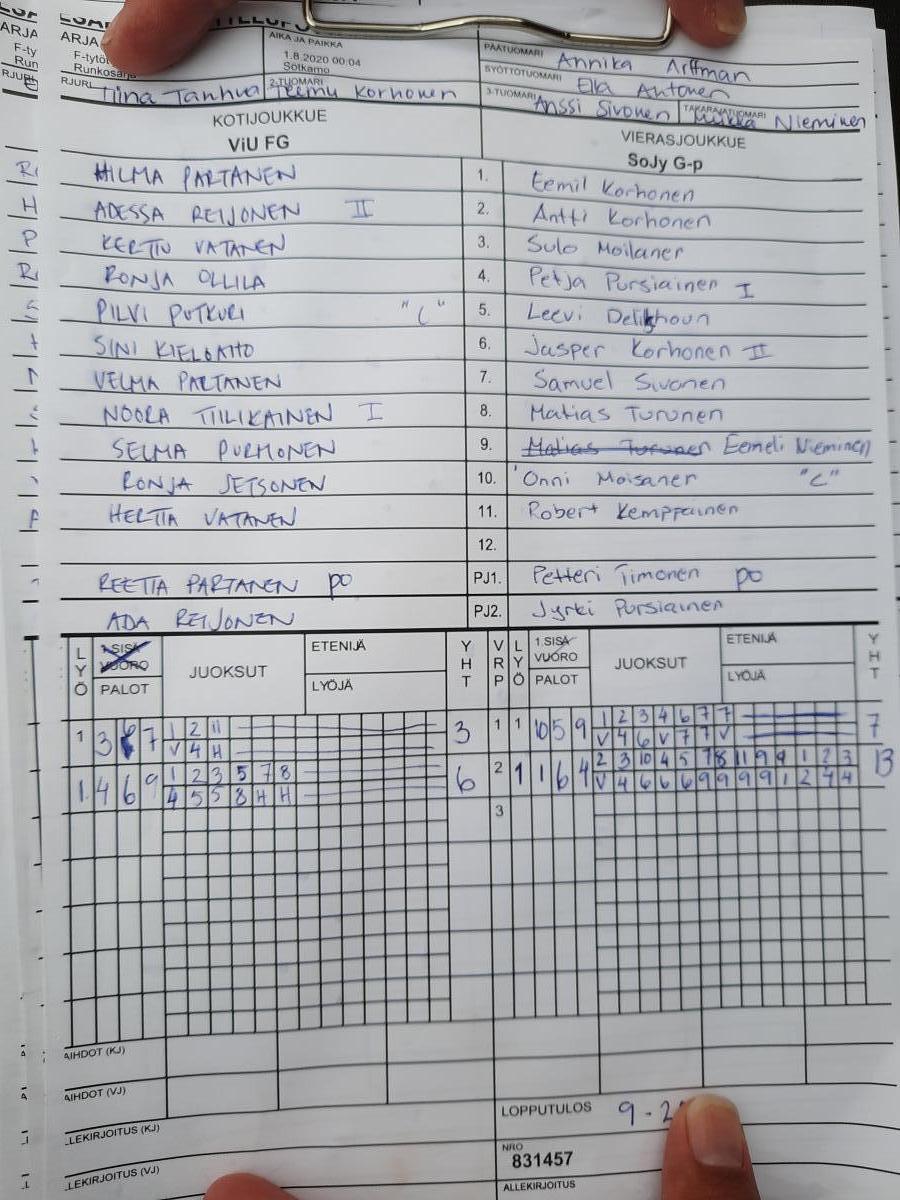 ARJA
F-tytöt
Runkosarja
AIKA JA PAIKKA
1.8.2020 00:04
Sotkamo
PÄÄTUOMARI Annika Arffman
SYÖTTÖTUOMARI Ella Antonen
RJURI Tiina Tanhua 2-TUOMARI Teemu Korhonen 3-TUOMARI Anssi Sivonen TAKARAJATUOMARI Nieminen
KOTIJOUKKUE VIERASJOUKKUE
ViU FG SoJy G-p
HILMA PARTANEN 1. Eemil Korhonen
ADESSA REIJONEN II 2. Antti Korhonen
KERTTU VATANEN 3. Sulo Moilanen
RONJA OLLILA 4. Petja Pursiainen I
PILVI PUTKURI "C" 5. Leevi
SINI 6. Jasper Korhonen II
VELMA PARTANEN 7. Samuel Sivonen
NOORA TIILIKAINEN I 8. Matias Turunen
SELMA PURMONEN 9. Matias Turunen Eemeli Nieminen
RONJA JETSONEN 10. Onni Moisanen "C"
HERTTA VATANEN 11. Robert Kemppainen
12.
REETTA PARTANEN po PJ1. Petteri Timonen po
ADA REIJONEN PJ2. Jyrki Pursiainen
LYÖ 1.SISÄ VUORO PALOT JUOKSUT ETENIJÄ LYÖJÄ YHT VRP LYÖ 1.SISÄ VUORO PALOT JUOKSUT ETENIJÄ LYÖJÄ YHT
1 3 7 1 2 11 3 1 1 10 5 9 1 2 3 4 6 7 7 7
V 4 H V 4 6 V 7 7 V
1 4 6 9 1 2 3 5 7 8 6 2 1 1 6 4 2 3 10 4 5 7 8 11 9 9 1 2 3 13
4 5 5 8 H H V 4 6 6 6 9 9 9 9 1 2 4 4
3
AIHDOT (KJ)
AIHDOT (VJ)
LEKIRJOITUS (KJ)
LEKIRJOITUS (VJ)
LOPPUTULOS 9 - 2
NRO
831457
ALLEKIRJOITUS